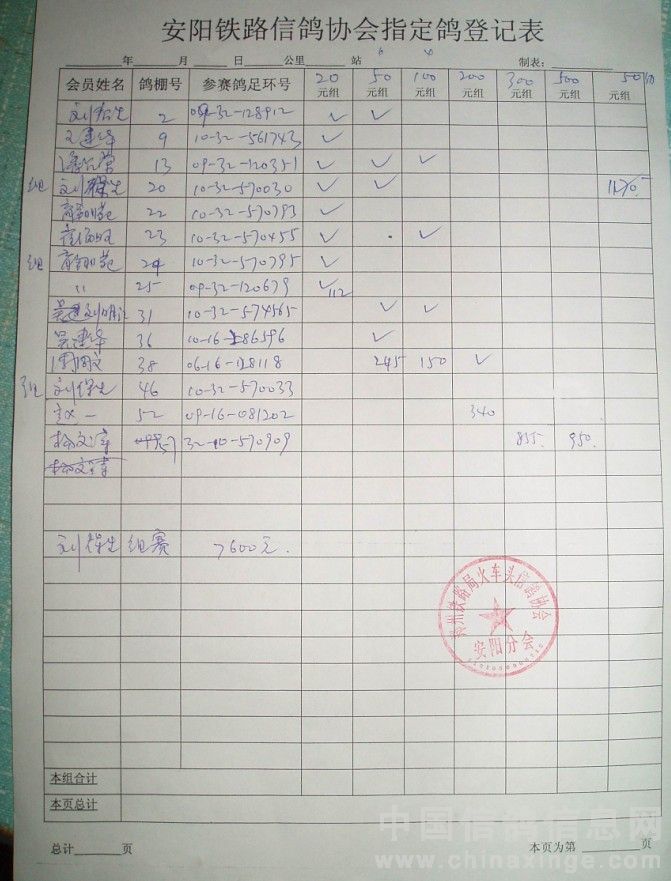 安阳铁路信鸽协会指定鸽登记表
年 月 日 公里 站 制表:
会员姓名 鸽棚号 参赛鸽足环号 20元组 50元组 100元组 200元组 300元组 500元组 元组
2 09-32-128912 ✓ ✓
王建华 9 10-32-561743 ✓
13 09-32-120351 ✓ ✓ ✓
组 刘保生 20 10-32-570030 ✓ ✓
22 10-32-570793 ✓
23 10-32-570455 ✓ ✓
组 24 10-32-570795 ✓
〃 25 09-32-120679 ✓ 112
31 10-32-574565 ✓ ✓
吴建华 36 10-16-186596 ✓
38 06-16-128118 245 150 ✓
组 刘保生 46 10-32-570033
赵一 52 09-16-081202 340
32-10-570909 855 950
刘保生 组赛 7600元.
郑州铁路局火车头信鸽协会
安阳分会
本组合计
本页总计
总计 页 本页为第 页
中国信鸽信息网
www.chinaxinge.com